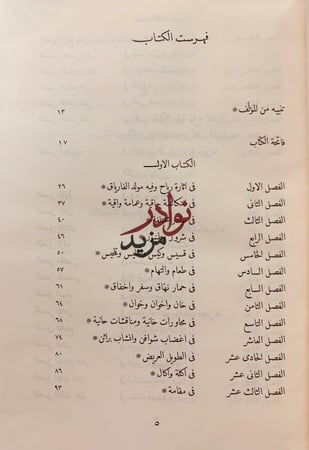 فهرست الكتاب
تنبيه من المؤلف * ١٣
فاتحة الكتاب ١٧
الكتاب الاول
الفصل الاول فى اثارة رياح وفيه مولد الفارياق * ٢٦
الفصل الثانى فى واقية وعمامة واقية * ٣٧
الفصل الثالث فى ٤٠
الفصل الرابع فى شرور ٤٦
الفصل الخامس فى قسيس وكيس ٥٠
الفصل السادس فى طعام والتهام * ٥٧
الفصل السابع فى حمار نهاق وسفر واخفاق * ٦١
الفصل الثامن فى خان واخوان وخوان * ٦٤
الفصل التاسع فى محاورات خانية ومناقشات حانية * ٦٨
الفصل العاشر فى اغضاب شوافن وانشاب براثن * ٧٤
الفصل الحادى عشر فى الطويل العريض * ٨٠
الفصل الثانى عشر فى اكلة واكال * ٨٦
الفصل الثالث عشر فى مقامة * ٩٣
٥
نوادر
مزيد